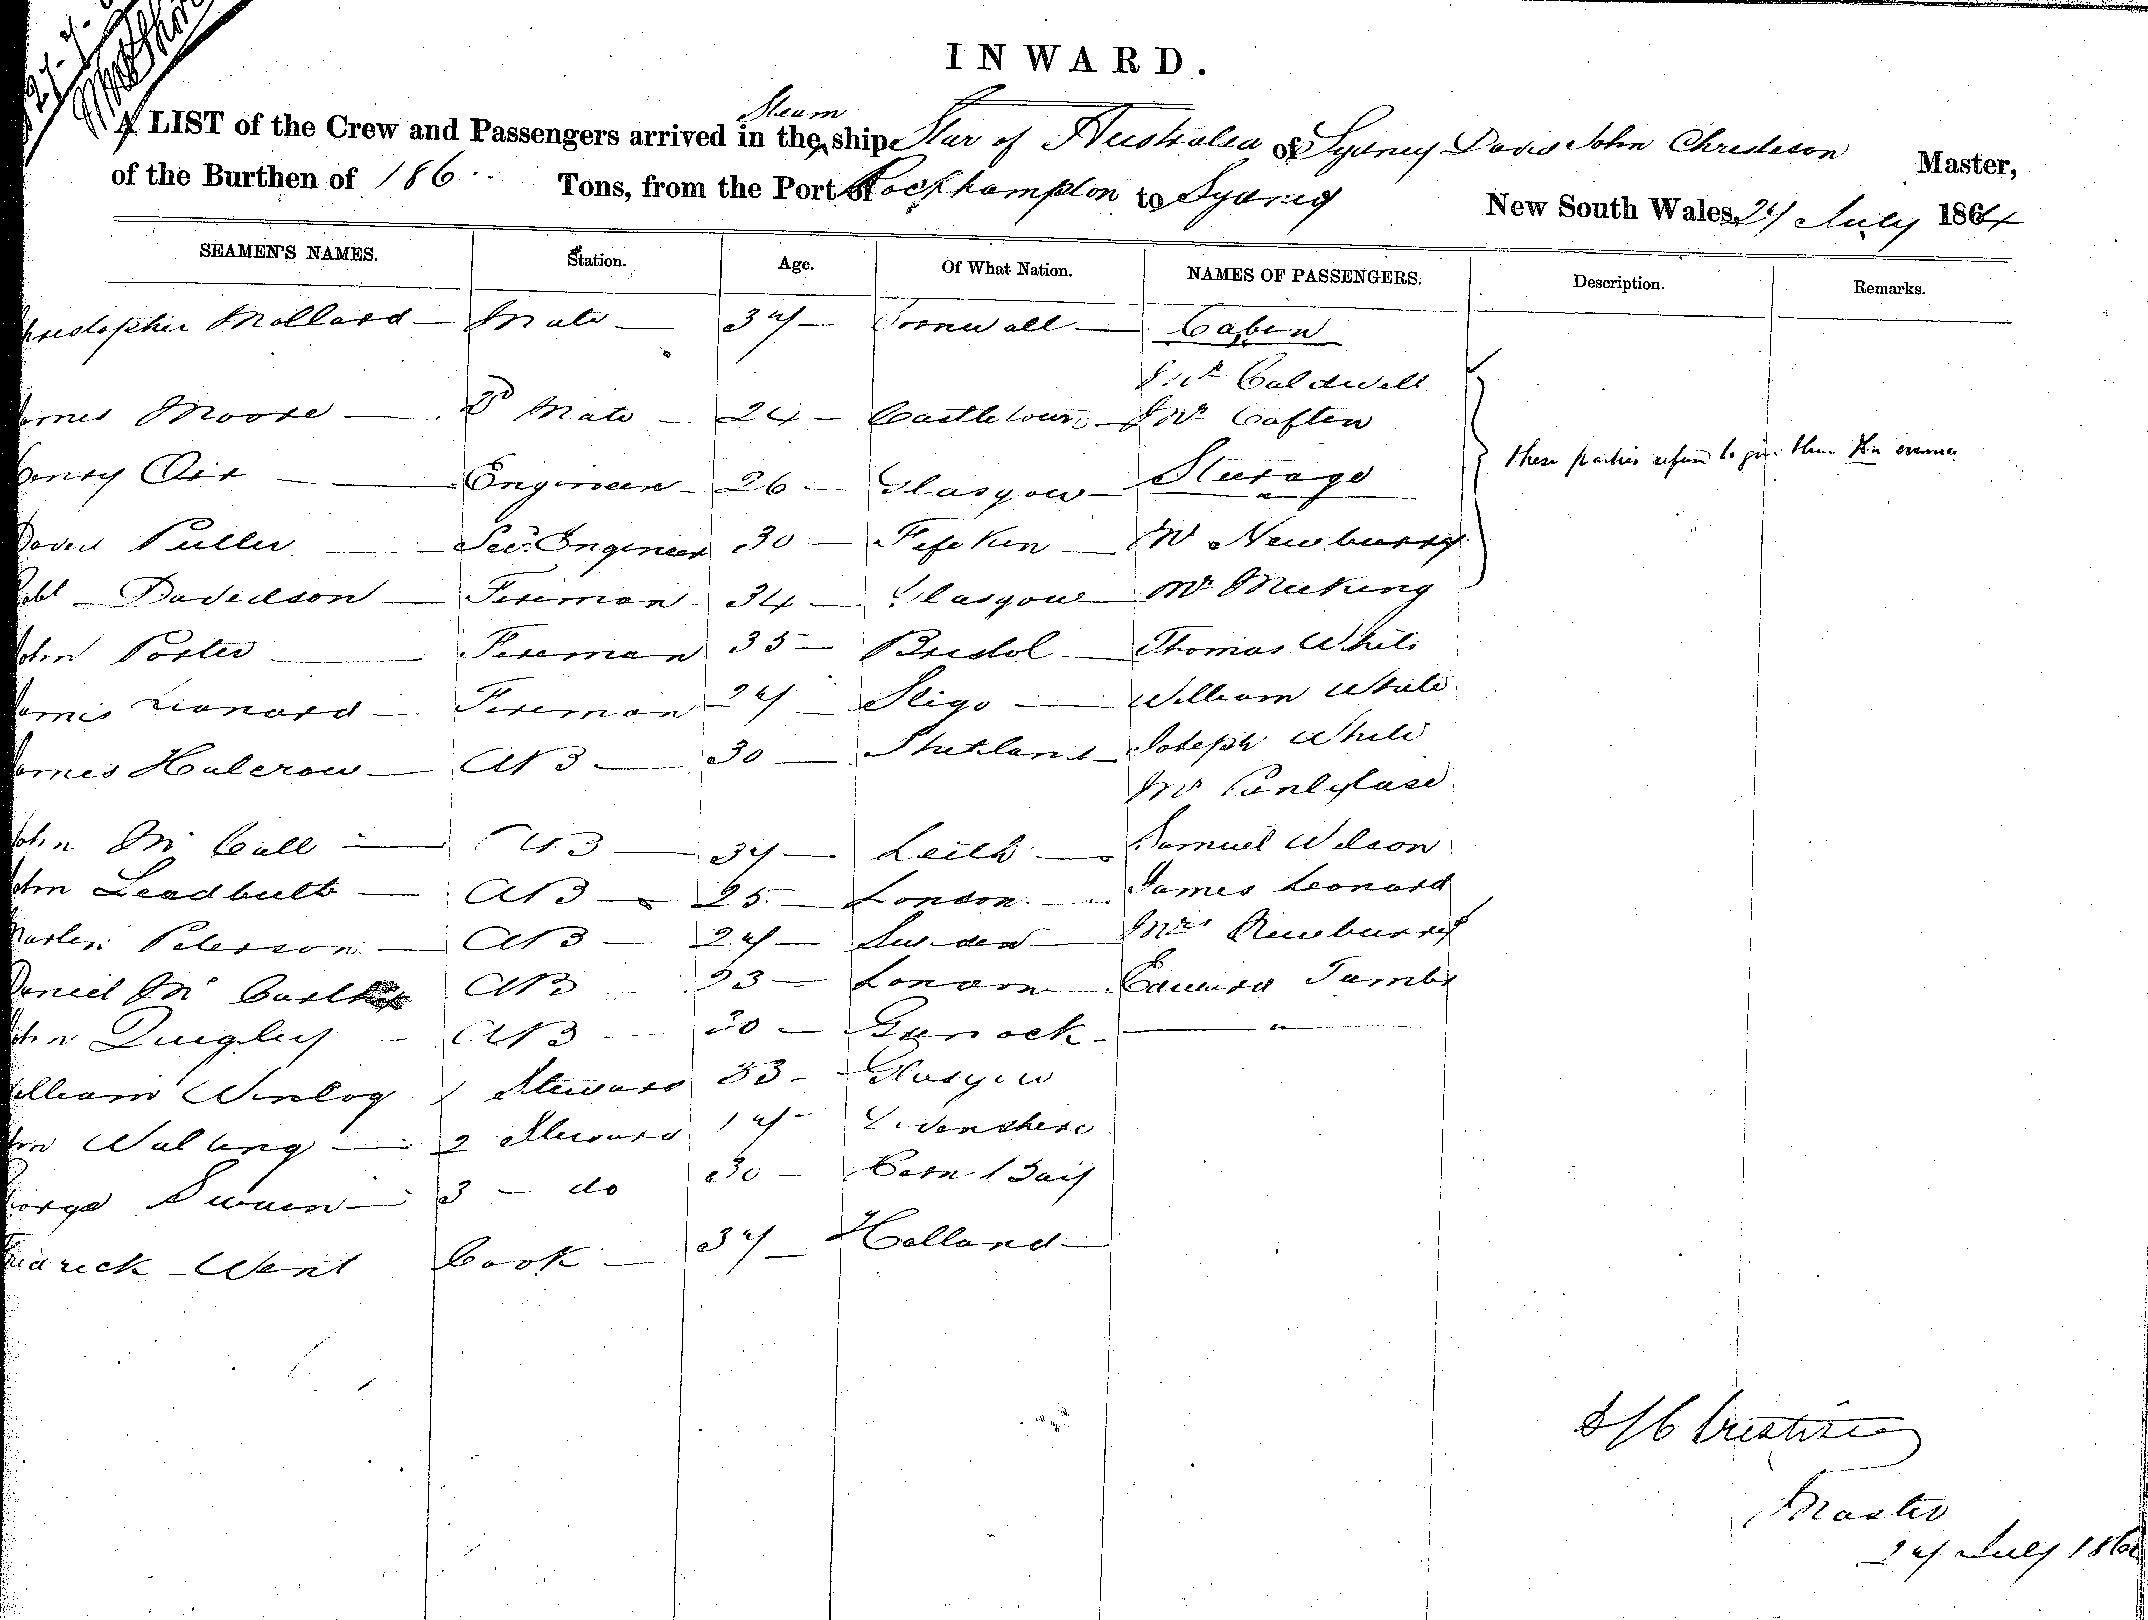 INWARD.
Steam
A LIST of the Crew and Passengers arrived in the ship Star of Australia of Sydney David John Christeson Master,
of the Burthen of 186 Tons, from the Port of Rockhampton to Sydney New South Wales, 27 July 1864
SEAMEN'S NAMES. Station. Age. Of What Nation. NAMES OF PASSENGERS. Description. Remarks.
Christopher Mollard Mate 37 Cornwall Cabin
Mr Caldwell
James Moore 2d Mate 24 Castletown Mr Caften
Henry Orr Engineer 26 Glasgow Sturage
David Puller Sec. Engineer 30 Fife Mr Newburry
these parties refuse to give them
Robt Davidson Fireman 34 Glasgow Mr Meeking
John Porter Fireman 35 Bristol Thomas White
James Leonard Fireman 27 Sligo William White
James Halcrow AB 30 Shetland Joseph White
Mr
John Mc Call AB 37 Leith Samuel Wilson
John Leadbutt AB 25 London James Leonard
Peterson AB 27 Sweden Mrs Newburry
Daniel Mc AB 23 London Edward Tumbs
John Quigley AB 30 Greenock
William 1 Steward 33 Glasgow
Walling 2 Steward 17 Devonshire
George Swain 3 - do 30
Fredrick Went Cook 37 Holland
Master
27 July 186